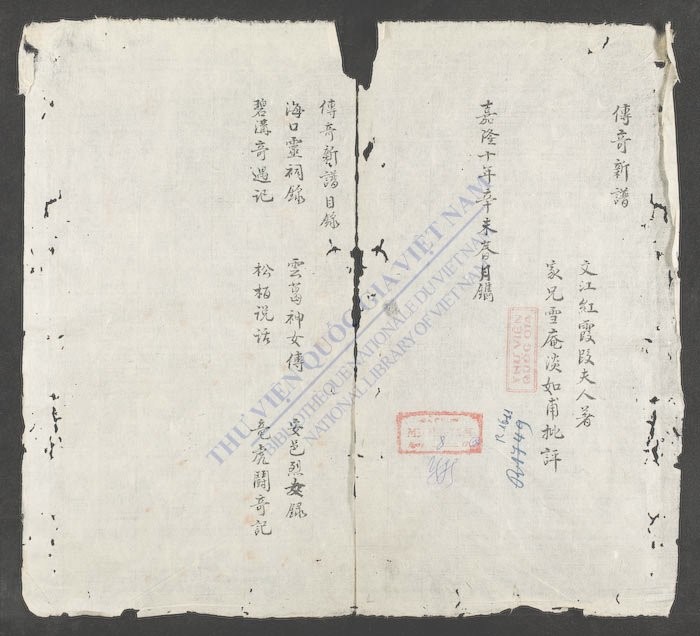 傳竒新譜
文江紅霞段夫人著
家兄雪庵淡如甫批評
嘉隆十年辛未春月鐫
THƯ VIỆN
QUỐC GIA
傳竒新譜目錄
海口靈祠錄 雲葛神女傳 安邑烈女錄
碧溝竒遇记 松栢说话 竜虎鬪竒記
THƯ VIỆN QUỐC GIA VIỆT NAM
BIBLIOTHÈQUE NATIONALE DU VIETNAM
NATIONAL LIBRARY OF VIETNAM